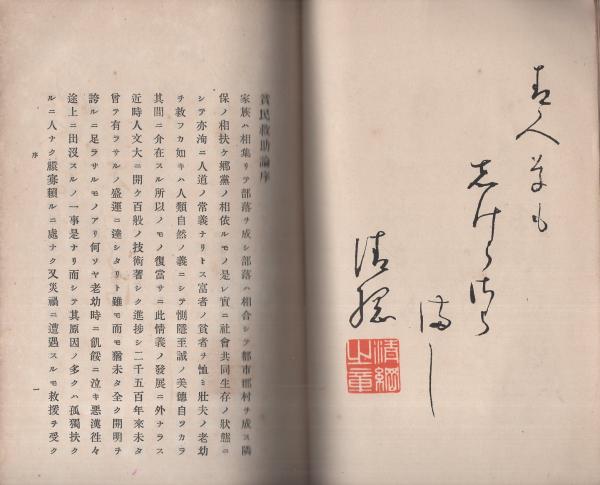 清綱
之章
貧民救助論序
家族ハ相集リテ部落ヲ成シ部落ハ相合シテ都市郡村ヲ成ス隣
保ノ相扶ケ鄕黨ノ相依ルモノ是レ實ニ社會共同生存ノ狀態ニ
シテ亦洵ニ人道ノ常義ナリトス富者ノ貧者ヲ恤ミ壯夫ノ老幼
ヲ救フカ如キハ人類自然ノ義ニシテ惻隱至誠ノ美德自ツカラ
其間ニ介在スル所以ノモノ復當サニ此情義ノ發展ニ外ナラス
近時人文大ニ開ク百般ノ技術著シク進捗シ二千五百年來未タ
曾テ有ラサルノ盛運ニ達シタリト雖モ而モ猶未タ全ク開明ヲ
誇ルニ足ラサルモノアリ何ソヤ老幼時ニ飢餒ニ泣キ惡漢徃々
途上ニ出沒スルノ一事是ナリ而シテ其原因ノ多クハ孤獨扶ク
ルニ人ナク鰥寡賴ルニ處ナク又災禍ニ遭遇スルモ救援ヲ受ク
序
一